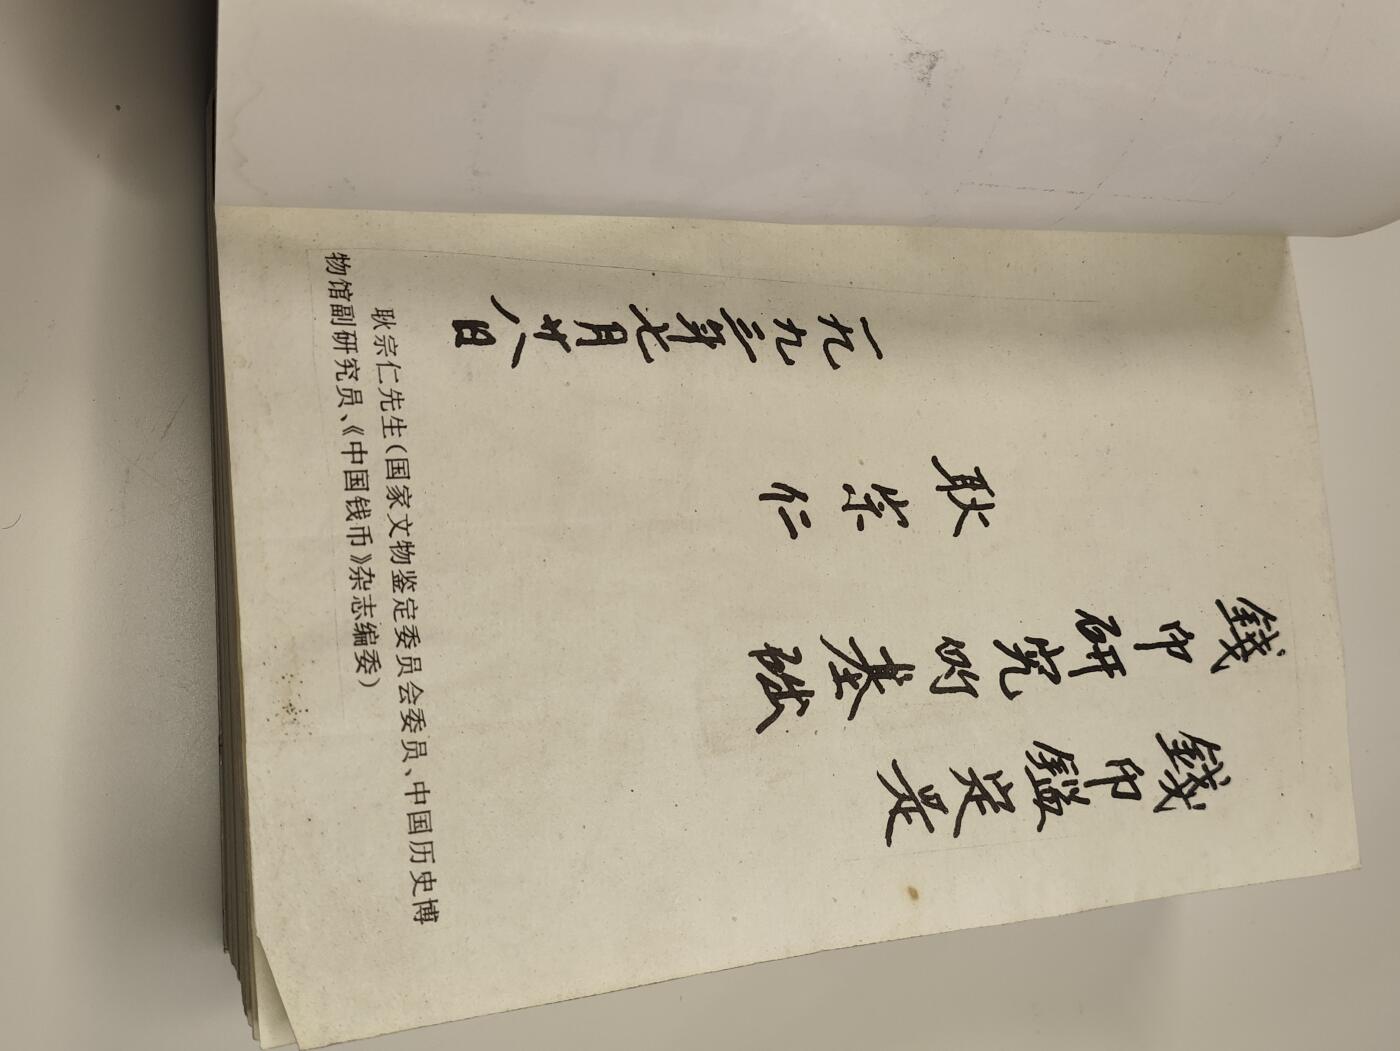 錢币鑑定是
錢币研究的基础
耿宗仁
一九九三年七月廿八日
耿宗仁先生(国家文物鉴定委员会委员、中国历史博
物馆副研究员、《中国钱币》杂志编委)